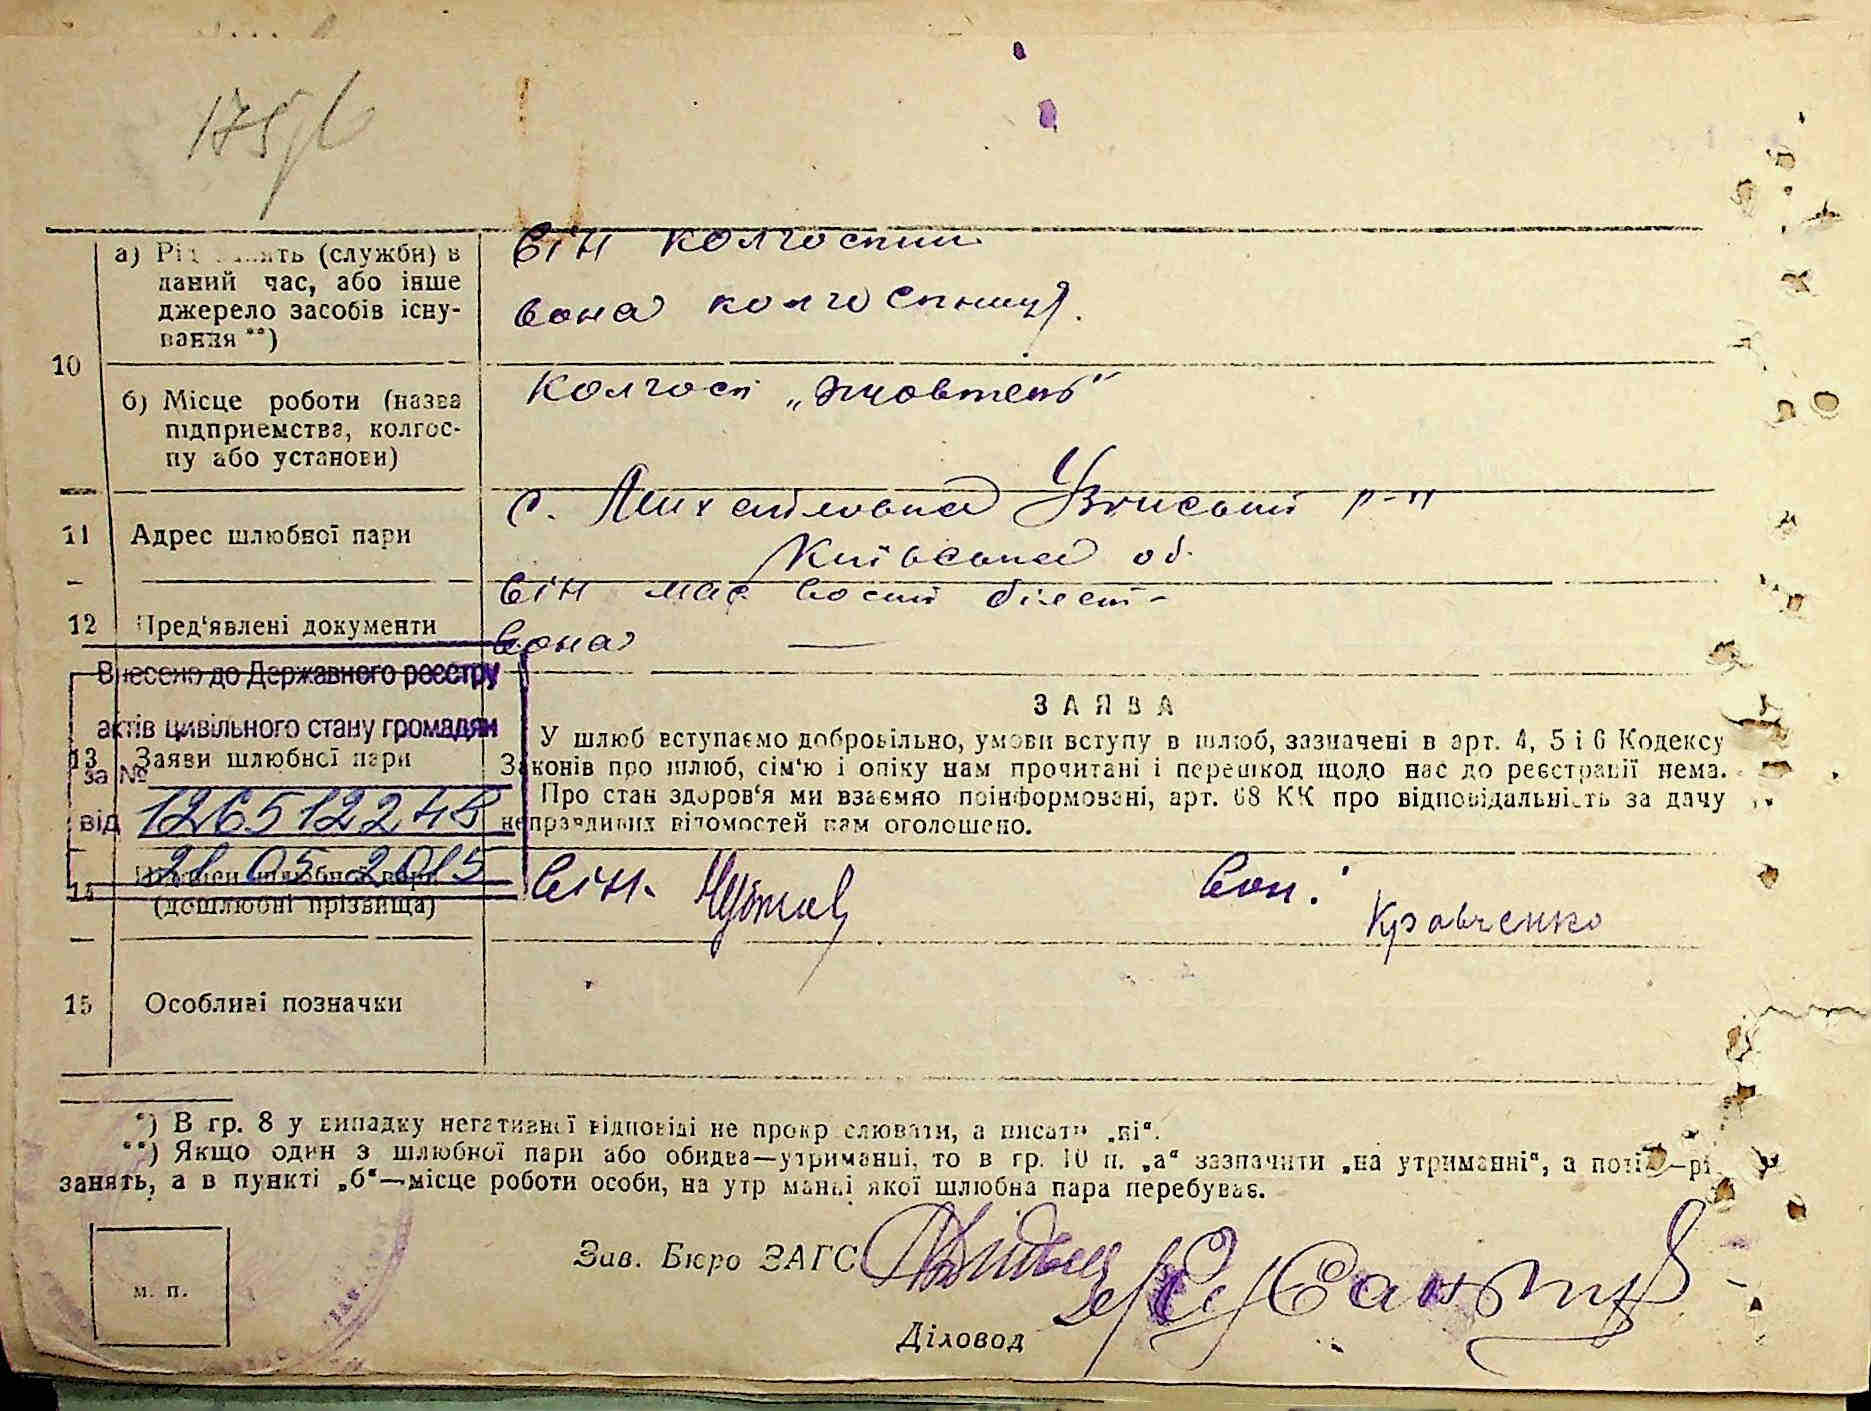 175/6
він колгоспник
а) Рід занять (служби) в
даний час, або інше
джерело засобів існу-
вання **)
вона колгоспниця.
10
б) Місце роботи (назва
підприємства, колгос-
пу або установи)
Колгосп „Жовтень"
11 Адрес шлюбної пари
с. Михайловка Узинський р-н
Київська об.
12 Пред'явлені документи
він має воєний білет-
вона —
Внесено до Державного реєстру
актів цивільного стану громадян
за №
від 12651224
21 05 2015
13 Заяви шлюбної пари
ЗАЯВА
У шлюб вступаємо добровільно, умови вступу в шлюб, зазначені в арт. 4, 5 і 6 Кодексу
Законів про шлюб, сім'ю і опіку нам прочитані і перешкод щодо нас до реєстрації нема.
Про стан здоров'я ми взаємно поінформовані, арт. 68 КК про відповідальність за дачу
неправдивих відомостей нам оголошено.
14 Підписи шлюбної пари
(дошлюбні прізвища)
він.
Вон:
Кравченко
15 Особливі позначки
*) В гр. 8 у випадку негативної відповіді не прокреслювати, а писати „ні".
**) Якщо один з шлюбної пари або обидва—утриманці, то в гр. 10 п. „а" зазначити „на утриманні", а потім—рі
занять, а в пункті „б"—місце роботи особи, на утриманні якої шлюбна пара перебуває.
Зав. Бюро ЗАГС
м. п.
Діловод